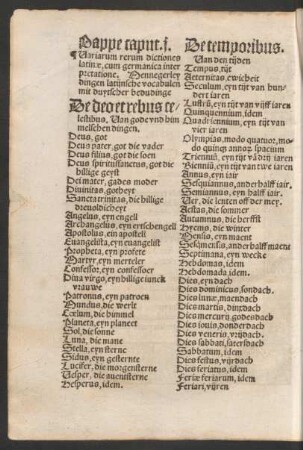 Pappe caput.j.
Variarum rerum dictiones
latinæ, cum germanica inter
pretatione. Mennegerley
dingen latijnsche vocabulen
mit duytscher bedudinge
De deo et rebus ce-
lestibus. Van gode vnd him
melschen dingen.
Deus, got
Deus pater, got die vader
Deus filius, got die soen
Deus spiritussanctus, got die
hillige geyst
Dei mater, gades moder
Diuinitas, gotheyt
Sancta trinitas, die hillige
dreuoldicheyt
Angelus, eyn engell
Archangelus, eyn ertzhengell
Apostolus, ein apostell
Euangelista, eyn euangelist
Propheta, eyn profete
Martyr, eyn merteler
Confessor, eyn confessoer
Diua virgo, eyn hillige iunck
vrauwe
Patronus, eyn patroen
Mundus, die werlt
Cœlum, die himmel
Planeta, eyn planeet
Sol, die sonne
Luna, die mane
Stella, eyn sterne
Sidus, eyn gesternte
Lucifer, die morgensterne
Vesper, die auentsterne
Hesperus, idem.
De temporibus.
Van den tijden
Tempus, tijt
Aeternitas, ewicheit
Seculum, eyn tijt van hun-
dert iaren
Lustrū, eyn tijt van vijff iaren
Quinquennium, idem
Quadriennium, eyn tijt van
vier iaren
Olympias, modo quatuor, mo-
do quinqʒ annorʒ spacium
Trienniū, eyn tijt vā drij iaren
Bienniū, eyn tijt van twe iaren
Annus, eyn iair
Sesquiannus, anderhalff iair.
Semiannus, eyn halff iair.
Ver, die lenten off der mey.
Aestas, die sommer
Autumnus, die herffst
Hyems, die winter
Mensis, eyn maent
Sesqimensis, anderhalff maent
Septimana, eyn weeke
Hebdomas, idem
Hebdomada idem.
Dies, eyn dach
Dies dominicus, sondach.
Dies lune, maendach
Dies martis, dingdach
Dies mercurij, godesdach
Dies iouis, donderdach
Dies veneris, vrijdach.
Dies sabbati, satersdach
Sabbatum, idem
Dies festus, vijrdach
Dies feriatus, idem
Feriæ feriarum, idem
Feriari, vijren